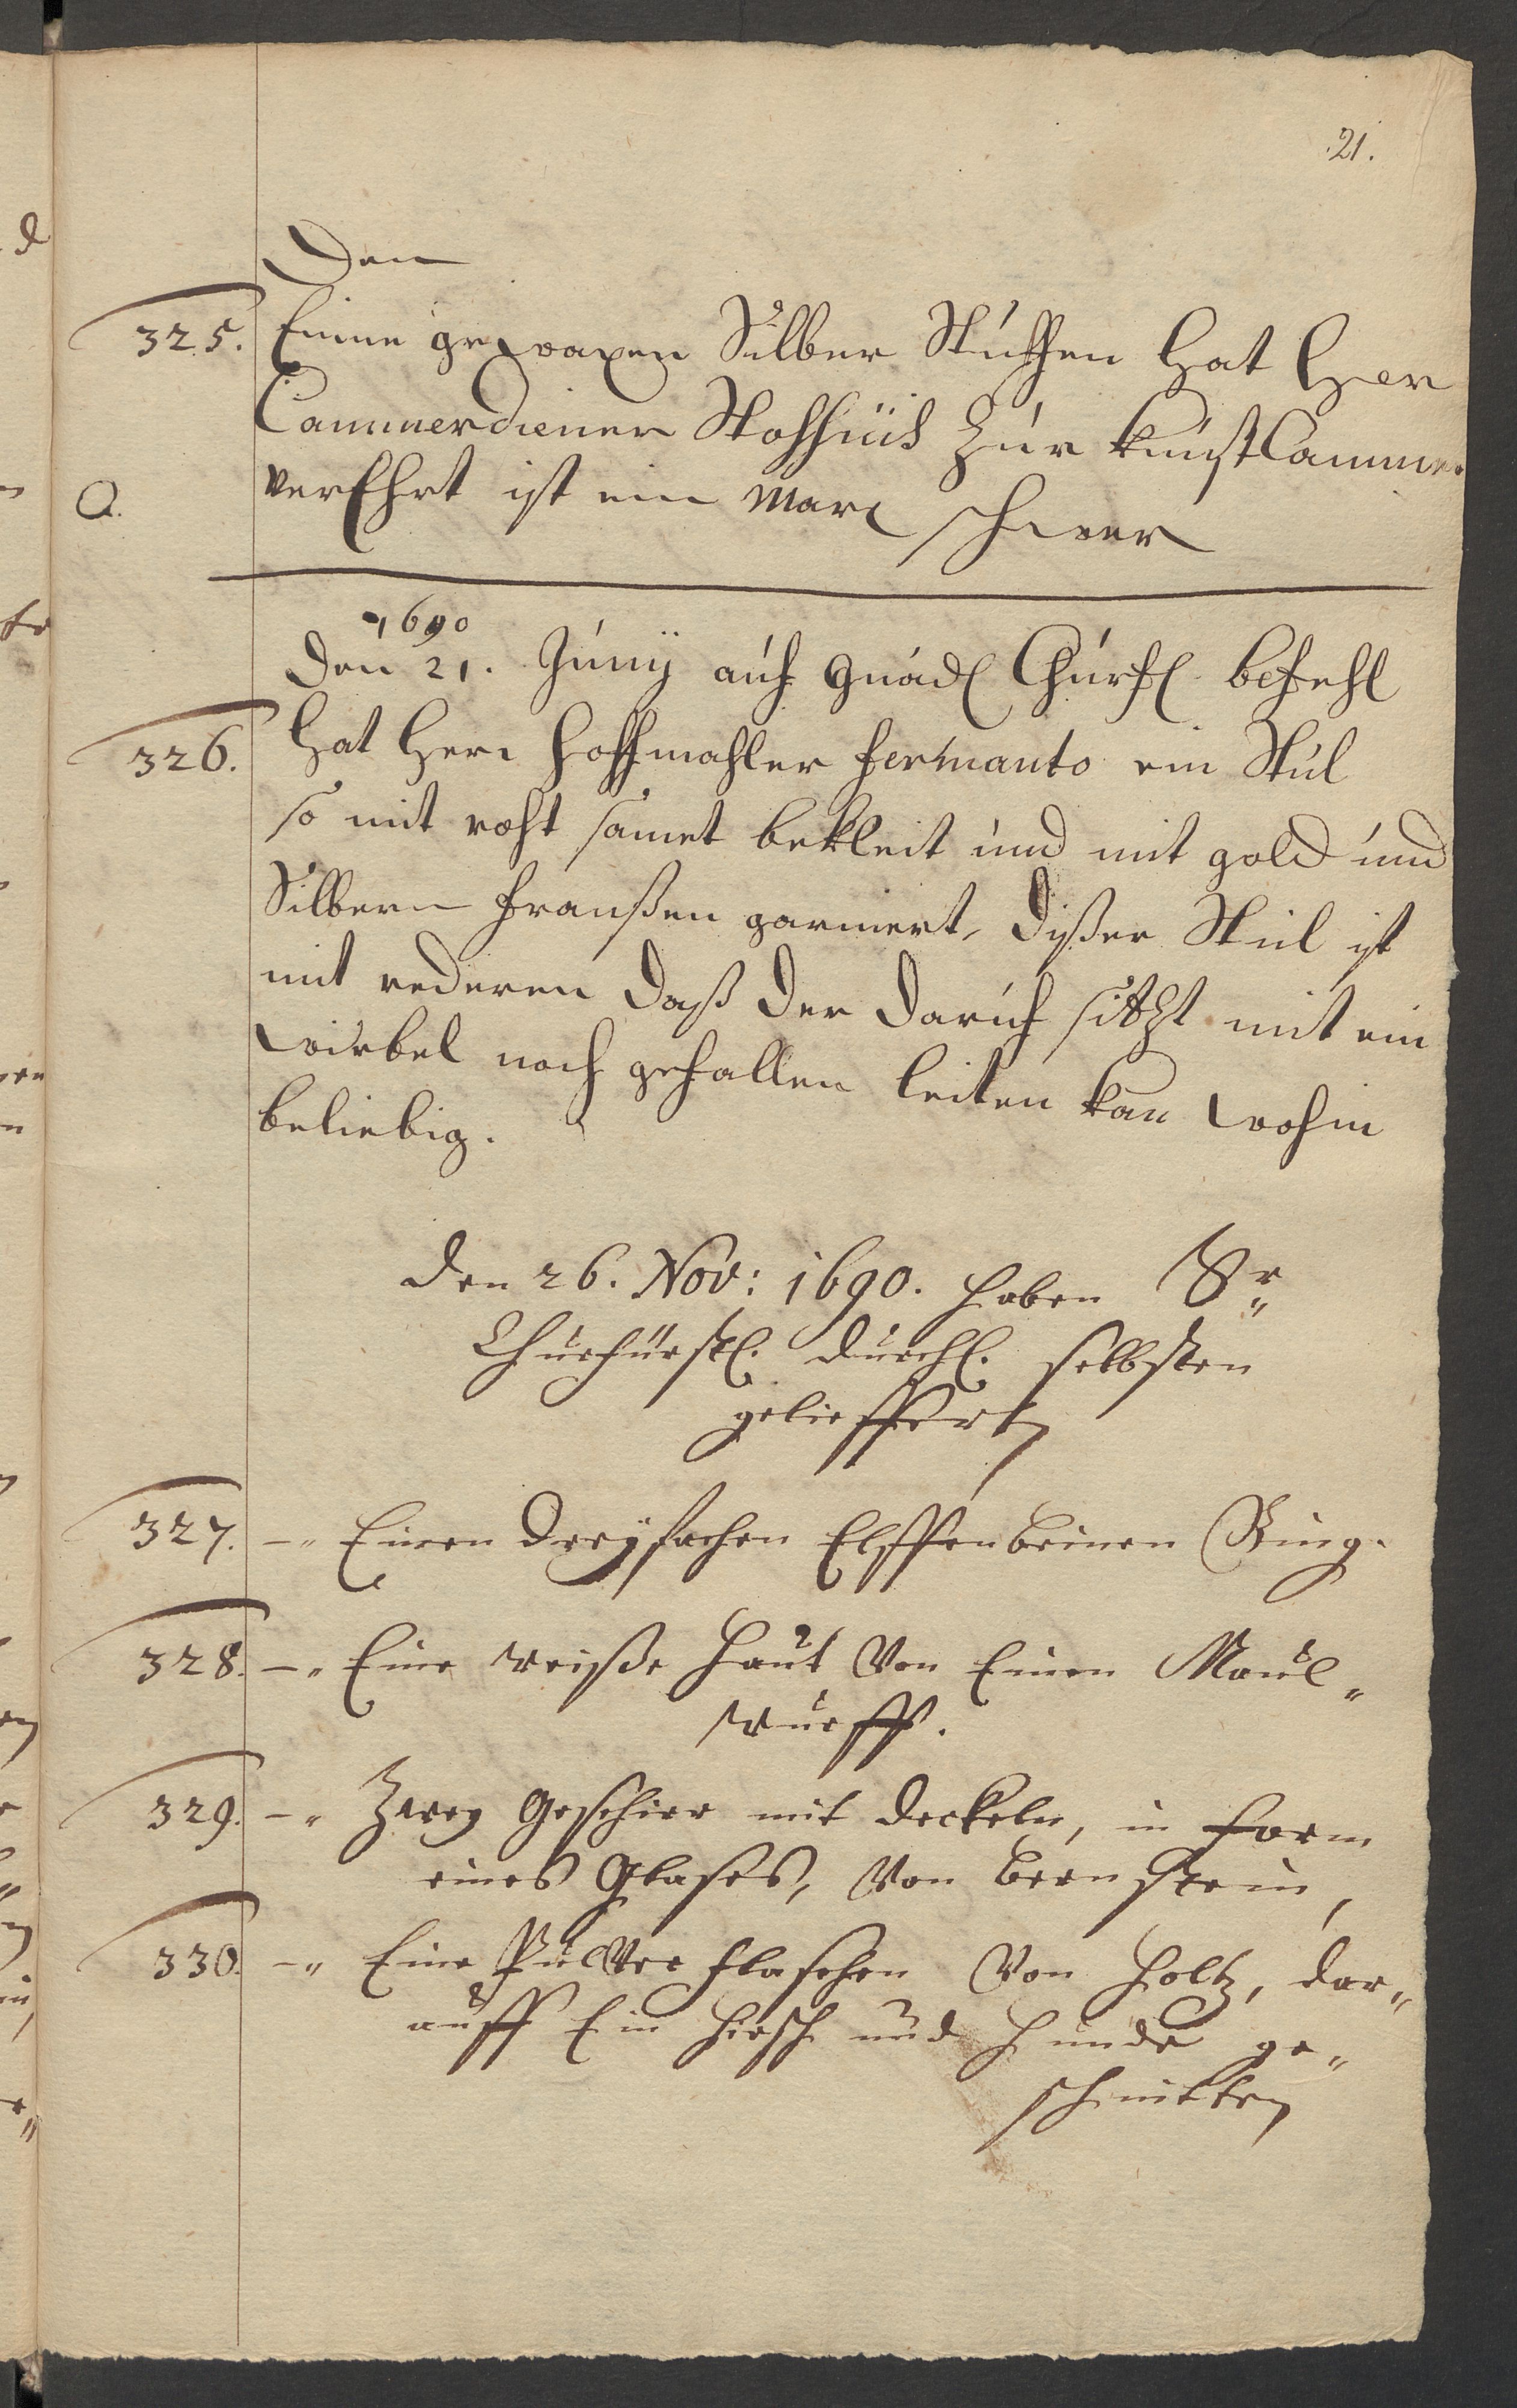 21.
Den
325. Einne gewaxen Silber Stuffen hat Her
Cammerdiener Stossius Zur kunstCammer
verEhrt ist ein Marc schwer
1690
Den 21. Junÿ auf gnäd Churf befehl
326. hat Herr Hoffmahler fermanto ein Stul
so mit roht samet bekleit und mit gold und
Silbern franßen garniert, dißer Stul ist
mit rederen daß der daruf sitzt mit ein
wirbel nach gefallen leiten kan wohin
beliebig.
Den 26. Nov: 1690. haben Sr
Churfürstl. Durchl. selbsten
gelieffert
327. -„ Einen dreÿfachen Elffenbeinen Ring.
328. -„ Eine weiße haut Von Einen Maul„
wurff.
329. -„ Zwey Geschirr mit deckeln, in form
eines Glases, Von bernstein,
330. -„ Eine Pulver flaschen Von holtz, dar„
auff Ein hirsch und hunde ge„
schnitten